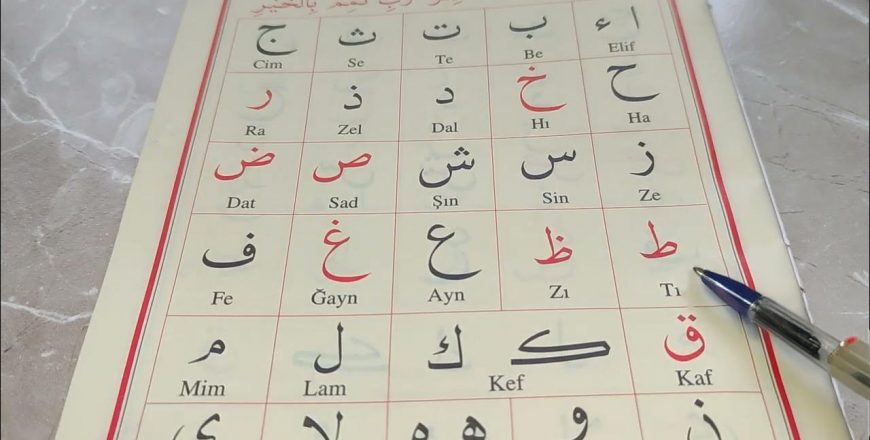 رَبِّ تَمِّمْ بِالْخَيْرِ
ا ء ب ت ث ج
Elif Be Te Se Cim
ح خ د ذ ر
Ha Hı Dal Zel Ra
ز س ش ص ض
Ze Sin Şın Sad Dat
ط ظ ع غ ف
Tı Zı Ayn Ğayn Fe
ق ك ك ل م
Kaf Kef Lam Mim
ن و ه ه لا ى